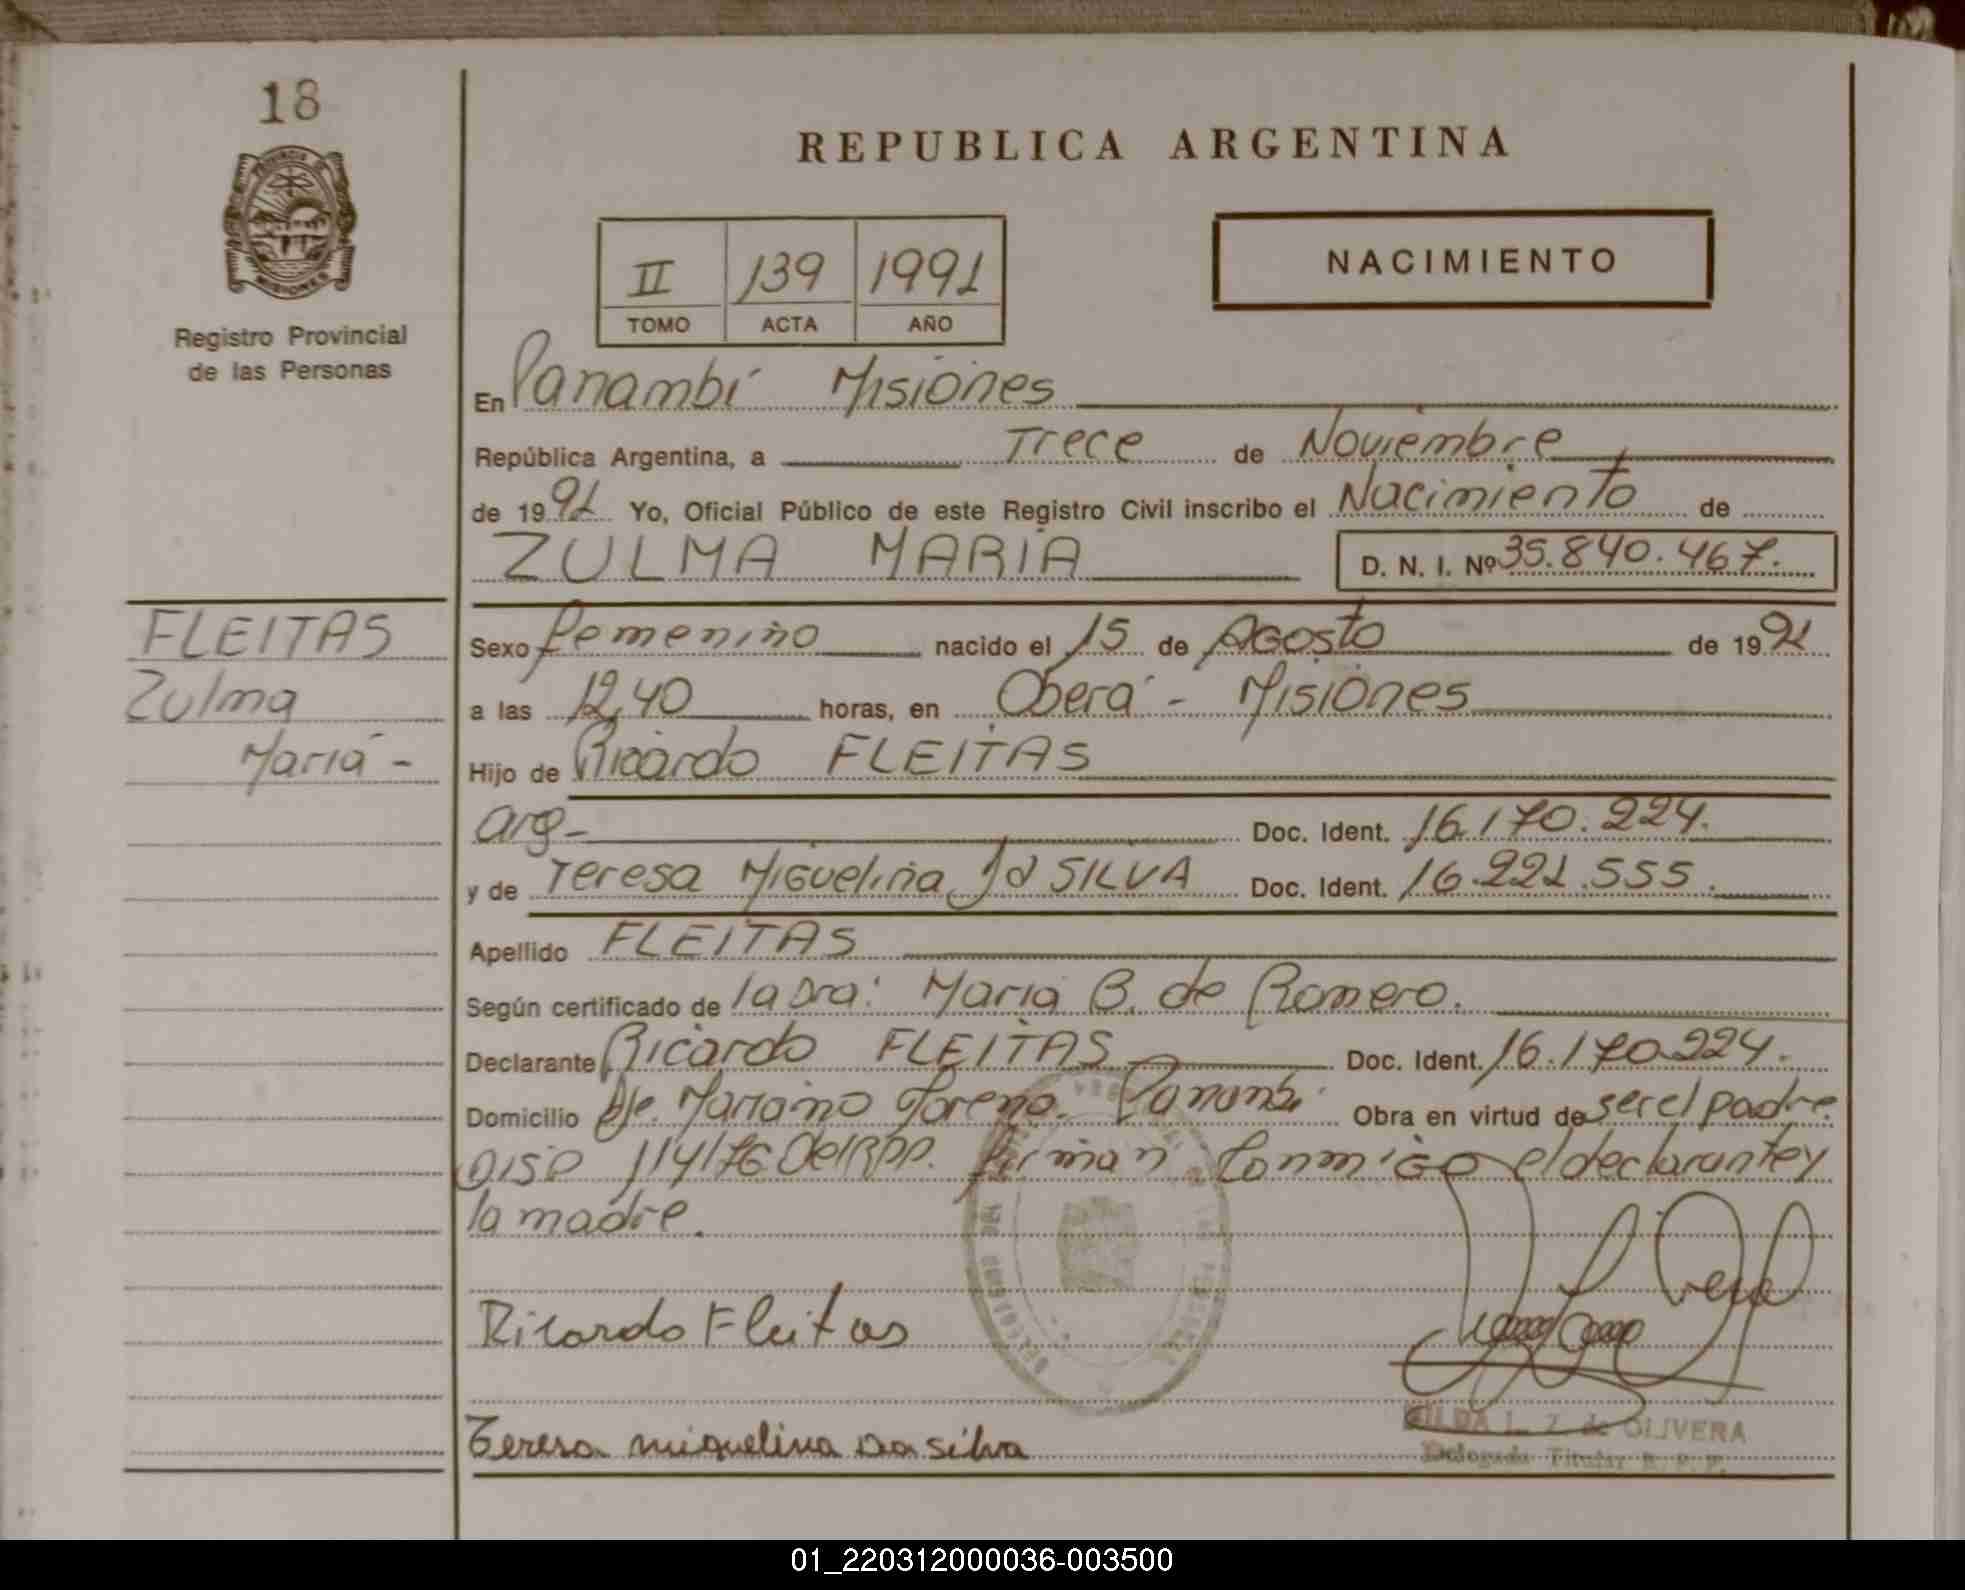 18
Registro Provincial
de las Personas
REPUBLICA ARGENTINA
II 139 1991
TOMO ACTA AÑO
NACIMIENTO
En Panambí Misiones
República Argentina, a Trece de Noviembre
de 1991 Yo, Oficial Público de este Registro Civil inscribo el Nacimiento de
ZULMA MARIA D. N. I. Nº 35.840.467.
FLEITAS
Zulma
María -
Sexo femenino nacido el 15 de Agosto de 1991
a las 12,40 horas, en Oberá - Misiones
Hijo de Ricardo FLEITAS
arg- Doc. Ident. 16.170.224.
y de Teresa Miguelina da SILVA Doc. Ident. 16.221.555.
Apellido FLEITAS
Según certificado de la Dra: Maria B. de Romero.
Declarante Ricardo FLEITAS Doc. Ident. 16.170.224.
Domicilio Mariano Moreno. Panambí Obra en virtud de ser el padre
Disp 114/76 Del RPP. firman conmigo el declarante y
la madre.
Ricardo Fleitas
Teresa miquelina Da silva
L. Z. de OLIVERA
Delegada Titular R. P. P.
01_220312000036-003500